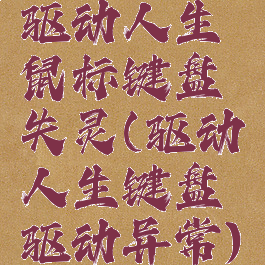 驱动人生
鼠标键盘
失灵(驱动
人生键盘
驱动异常)